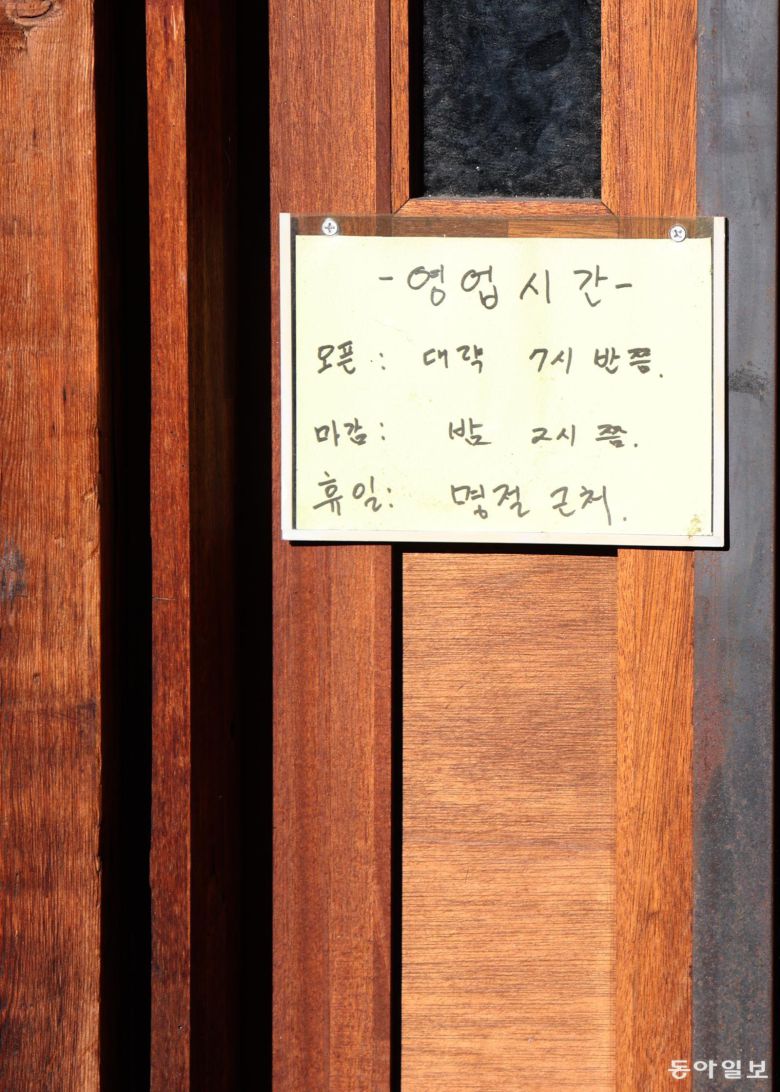 -영업시간-
오픈: 대략 7시 반쯤.
마감: 밤 2시 쯤.
휴일: 명절 근처.
동아일보